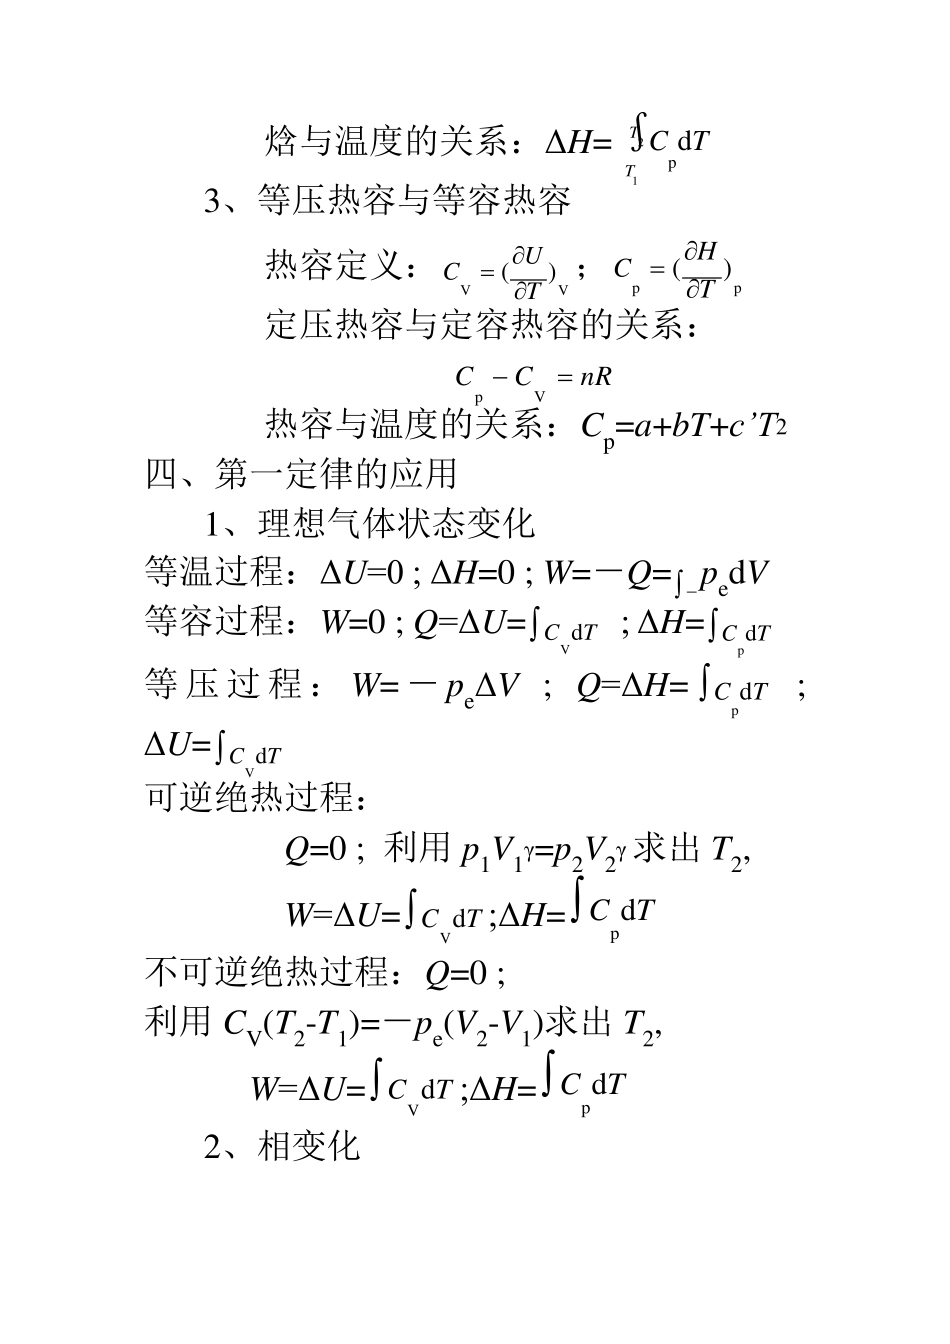 焓与温度的关系：ΔH= ∫_{T₁}^{T} C_p dT
3、等压热容与等容热容
热容定义：C_V = (∂U/∂T)_V ；C_p = (∂H/∂T)_p
定压热容与定容热容的关系：
C_p − C_V = nR
热容与温度的关系：C_p=a+bT+c’T2
四、第一定律的应用
1、理想气体状态变化
等温过程：ΔU=0 ; ΔH=0 ; W=－Q=∫−p_e dV
等容过程：W=0 ; Q=ΔU=∫C_V dT ; ΔH=∫C_p dT
等压过程：W=－p_eΔV ; Q=ΔH=∫C_p dT ;
ΔU=∫C_V dT
可逆绝热过程：
Q=0 ; 利用 p₁V₁γ=p₂V₂γ 求出 T₂,
W=ΔU=∫C_V dT ;ΔH=∫C_p dT
不可逆绝热过程：Q=0 ;
利用 C_V(T₂-T₁)=－p_e(V₂-V₁)求出 T₂,
W=ΔU=∫C_V dT ;ΔH=∫C_p dT
2、相变化